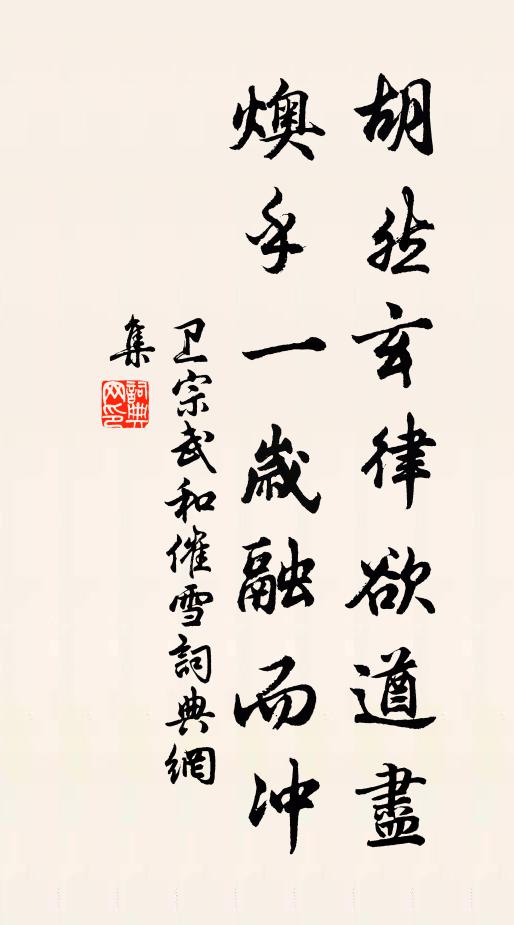 胡然玄律欲遒盡
燠乎一歲融而冲
卫宗武和催雪詞典網
集
詞典网印